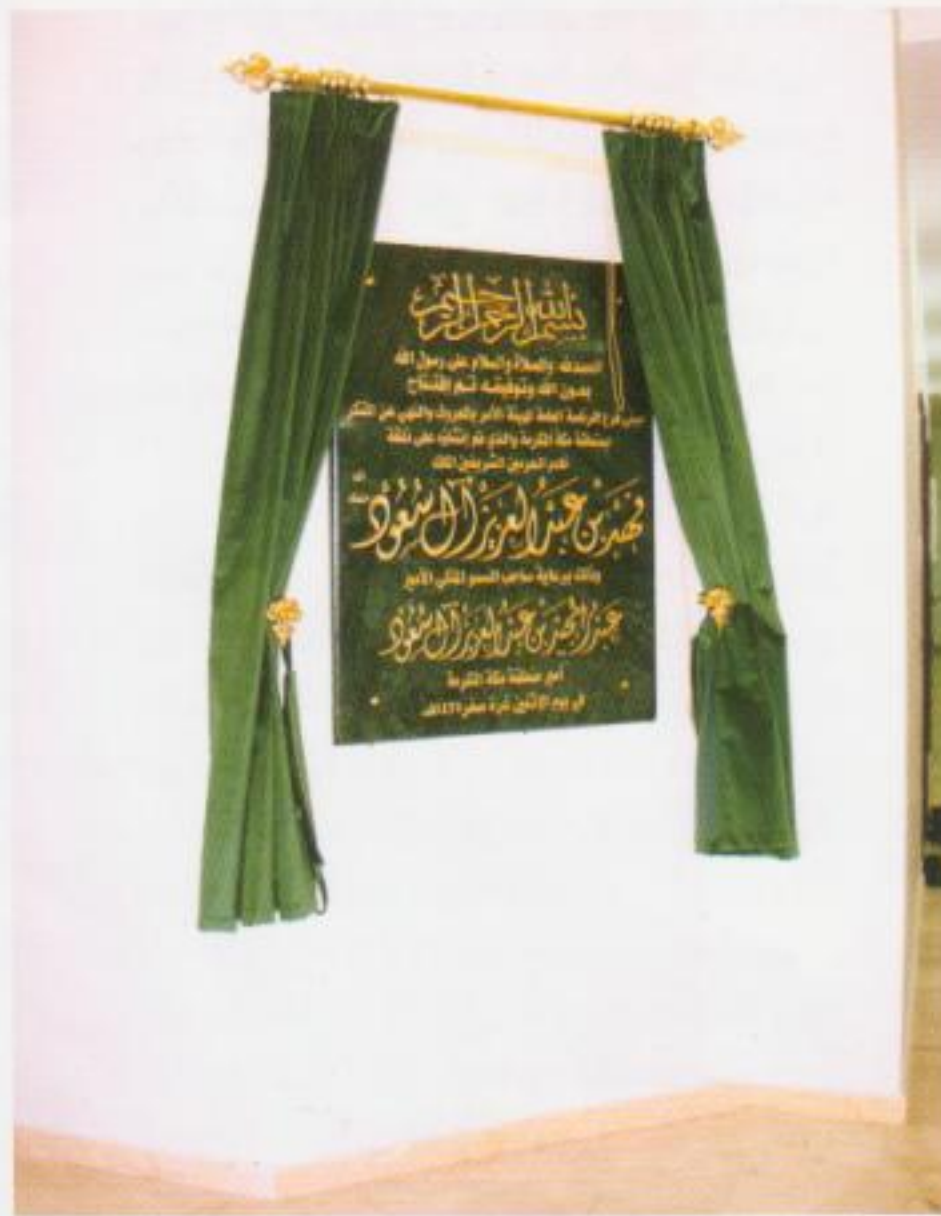 بسم الله الرحمن الرحيم
الحمد لله والصلاة والسلام على رسول الله
بعون الله وتوفيقه تم افتتاح
مبنى فرع الرئاسة العامة لهيئة الأمر بالمعروف والنهي عن المنكر
بمنطقة مكة المكرمة والذي تم إنشاؤه على نفقة
خادم الحرمين الشريفين الملك
فهد بن عبد العزيز آل سعود
وذلك برعاية صاحب السمو الملكي الأمير
عبد المجيد بن عبد العزيز آل سعود
أمير منطقة مكة المكرمة
في يوم الاثنين غرة صفر